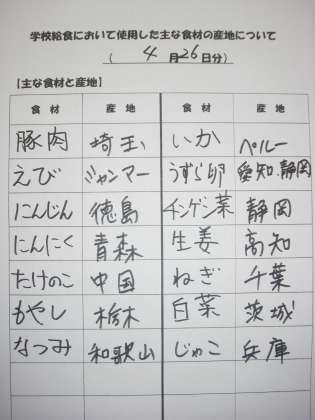 学校給食において使用した主な食材の産地について
( 4 月 26 日分)
【主な食材と産地】
食材 産地 食材 産地
豚肉 埼玉 いか ペルー
えび ミャンマー うずら卵 愛知・静岡
にんじん 徳島 チンゲン菜 静岡
にんにく 青森 生姜 高知
たけのこ 中国 ねぎ 千葉
もやし 栃木 白菜 茨城
なつみ 和歌山 じゃこ 兵庫